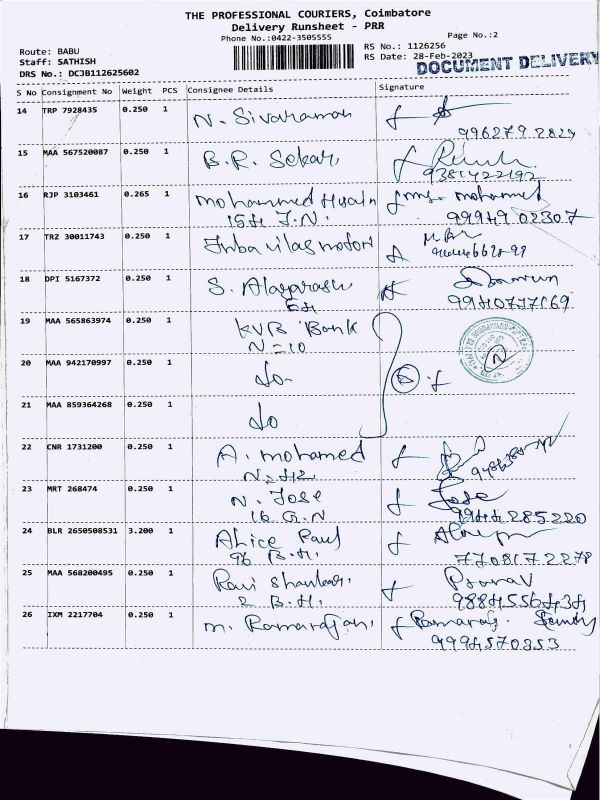 THE PROFESSIONAL COURIERS, Coimbatore
Delivery Runsheet - PRR
Phone No.:0422-3505555
Page No.:2
Route: BABU
RS No.: 1126256
Staff: SATHISH
RS Date: 28-Feb-2023
DRS No.: DCJB112625602
DOCUMENT DELIVERY
S No Consignment No Weight PCS Consignee Details Signature
14 TRP 7928435 0.250 1 N. Sivaraman
996279 2829
15 MAA 567520087 0.250 1 B.R. Sekar,
9381422192
16 RJP 3103461 0.265 1 mohammed Husain mohamed
15H J.N. 99949 02307
17 TRZ 30011743 0.250 1 Inba vilas motors
18 DPI 5167372 0.250 1 S. Alagarasu
19 MAA 565863974 0.250 1 KVB Bank
N=10
20 MAA 942170997 0.250 1 do-
21 MAA 859364268 0.250 1 do
22 CNR 1731200 0.250 1 A. mohamed
23 MRT 268474 0.250 1 N. Jose Jose
16 G.N 9944285220
24 BLR 2650508531 3.200 1 Alice Paul
96 B.H. 7708172278
25 MAA 568200495 0.250 1 Ravi Shankar. Pranav
2 B.H. 9884556434
26 IXM 2217704 0.250 1 m. Ramarajan.
9994570353